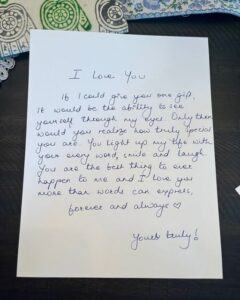 I Love You
If I could give you one gift,
it would be the ability to see
yourself through my eyes. Only then
would you realize how truly special
you are. You light up my life with
your every word, smile and laugh.
You are the best thing to ever
happen to me and I love you
more than words can express,
forever and always ♡
Yours truly!